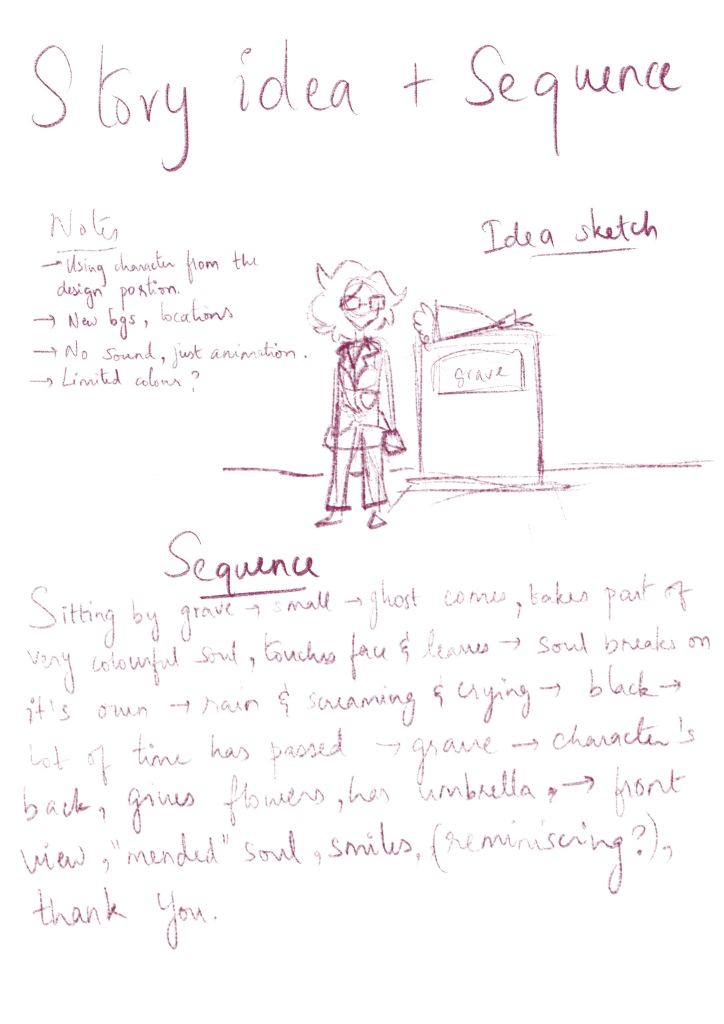 Story idea + Sequence
Notes
→ Using character from the
design portion.
→ New bgs, locations
→ No sound, just animation.
→ Limited colour?
Idea sketch
grave
Sequence
Sitting by grave → small → ghost comes, takes part of
very colourful soul, touches face & leaves → soul breaks on
it's own → rain & screaming & crying → black →
lot of time has passed → grave → character's
back, gives flowers, has umbrella, → front
view, "mended" soul, smiles, (reminiscing?),
thank you.